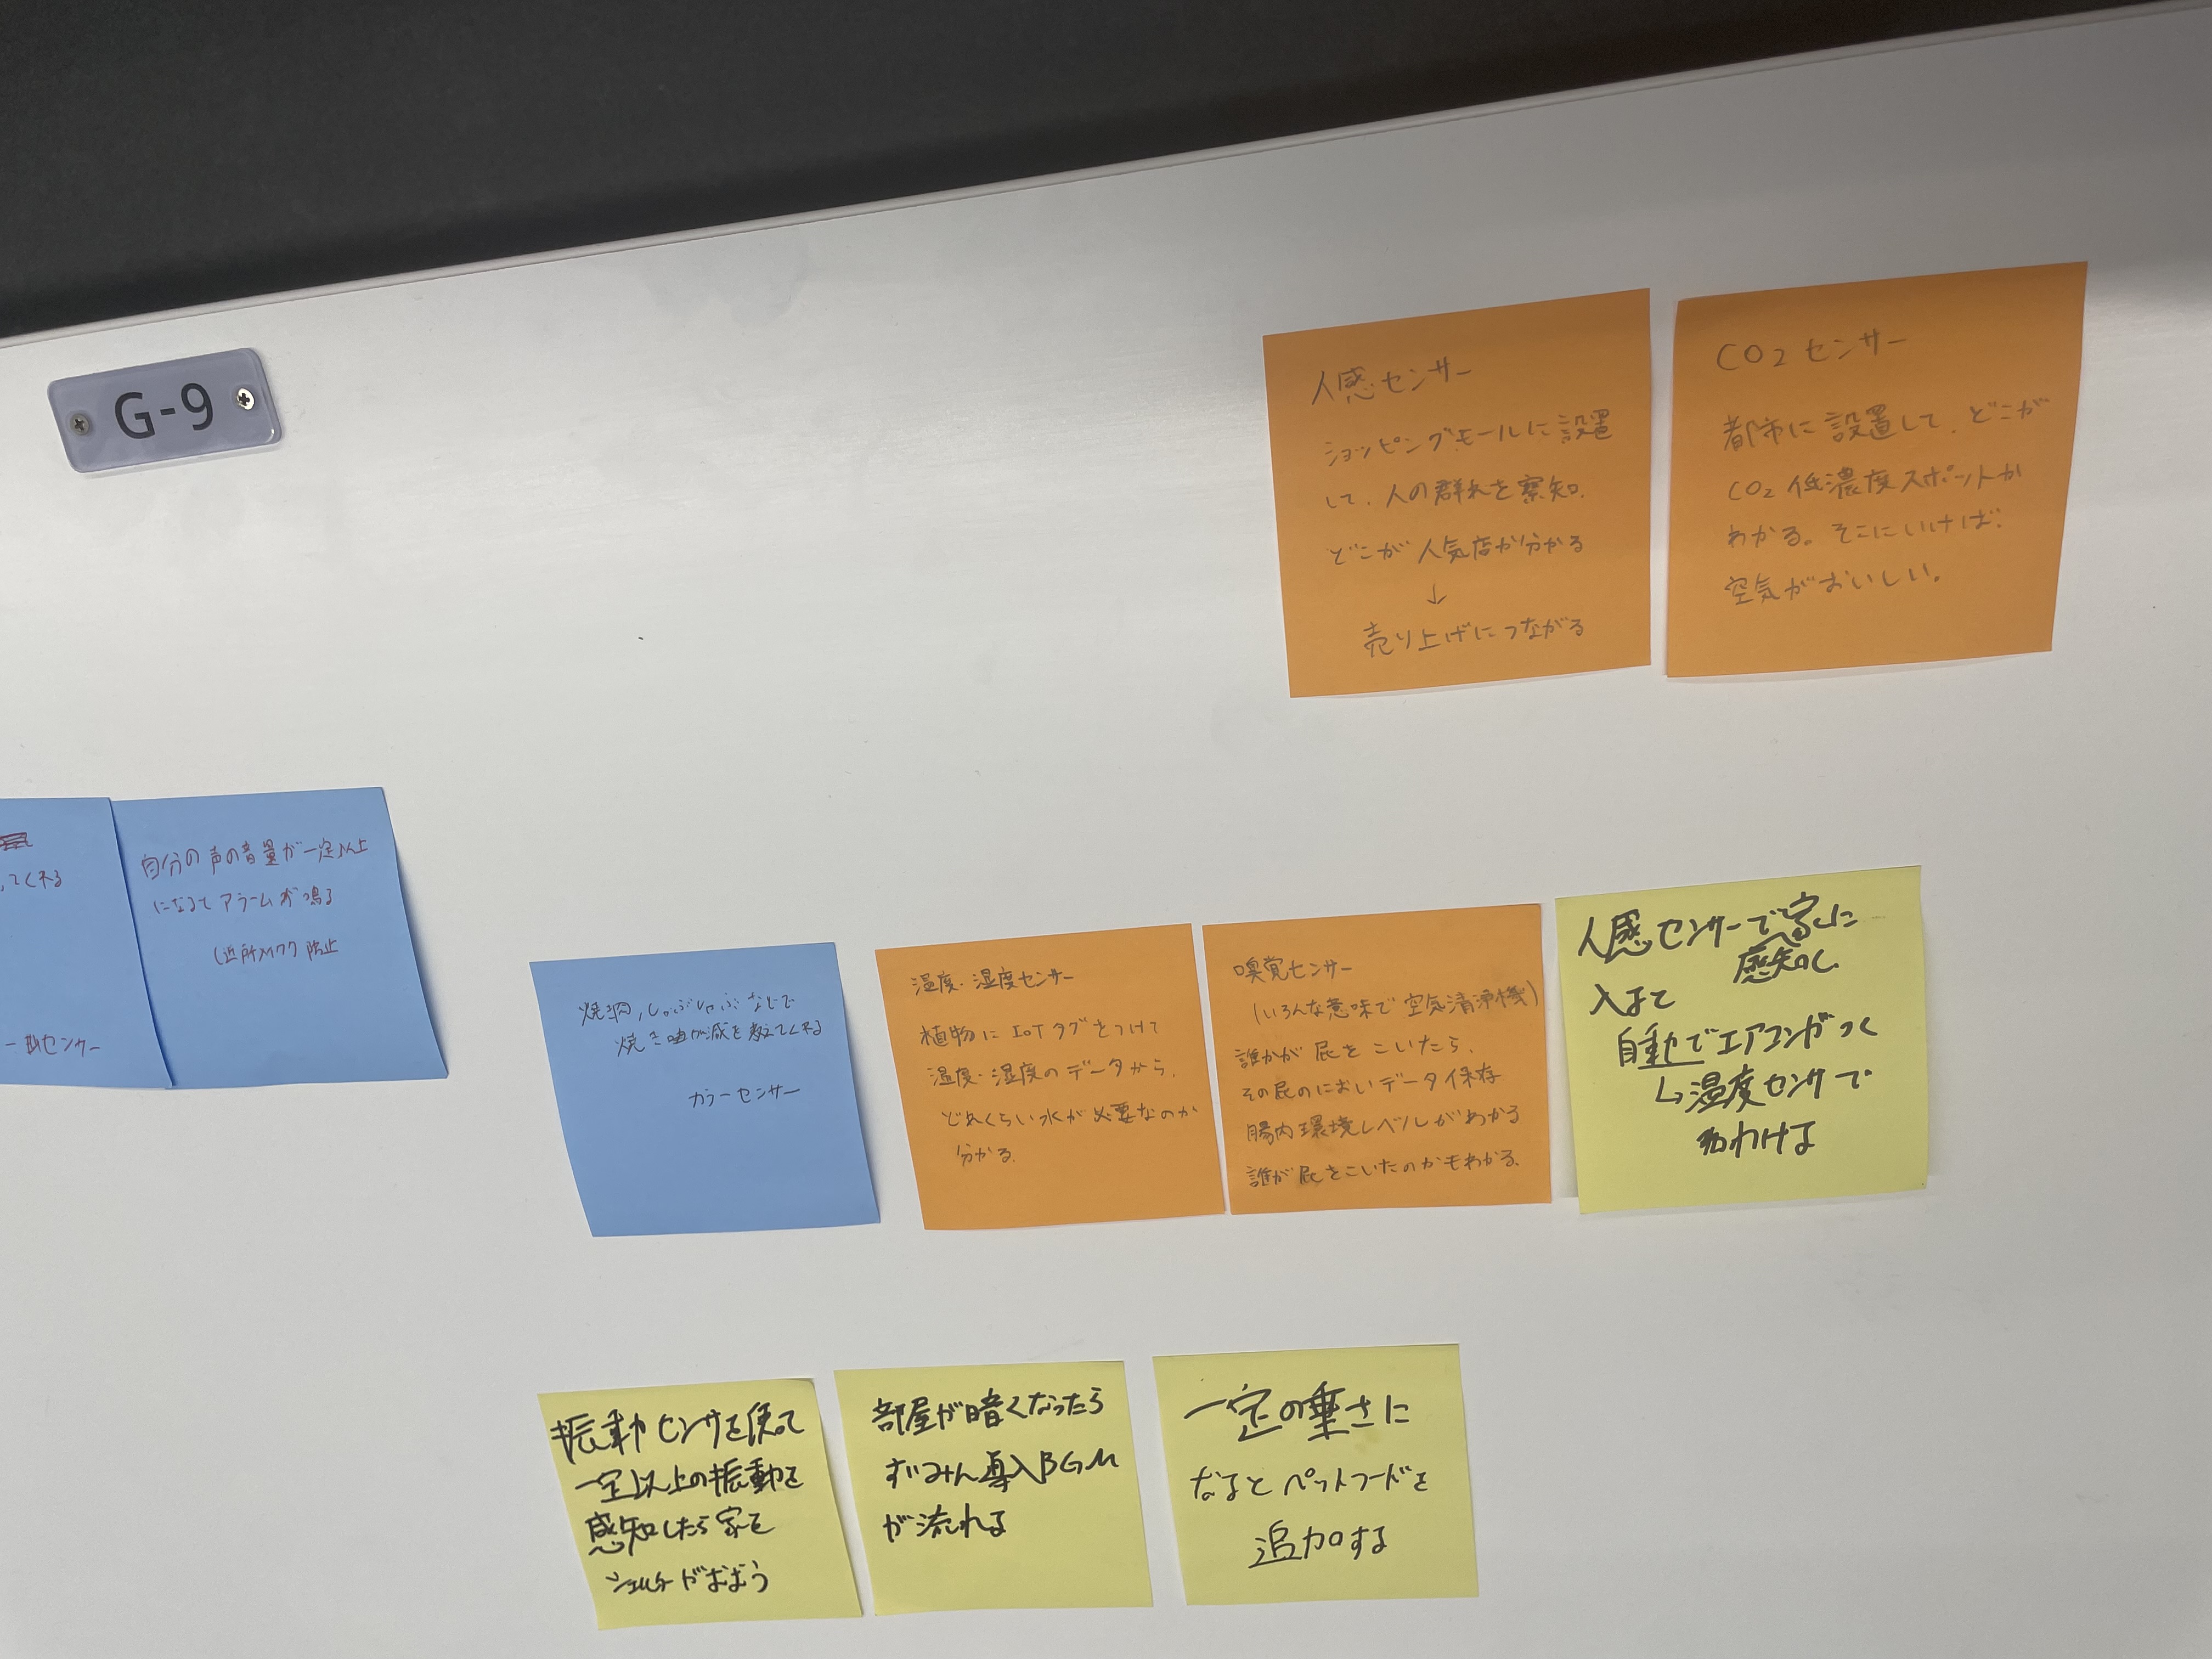 G-9
人感センサー
ショッピングモールに設置
して、人の群れを察知、
どこが人気店か分かる
↓
売り上げにつながる
CO2センサー
都市に設置して、どこが
CO2低濃度スポットか
わかる。そこにいけば、
空気がおいしい。
てくれる
センサー
自分の声の音量が一定以上
になるとアラームが鳴る
(近所メイワク防止
焼肉,しゃぶしゃぶなどで
焼き加減を教えてくれる
カラーセンサー
温度・湿度センサー
植物にIoTタグをつけて
温度・湿度のデータから、
どれくらい水が必要なのか
分かる。
嗅覚センサー
(いろんな意味で空気清浄機)
誰かが屁をこいたら、
その屁のにおいデータ保存
腸内環境レベルがわかる
誰が屁をこいたのかもわかる、
人感センサーで家に
感知し
入ると
自動でエアコンがつく
↳湿度センサで
わける
振動センサを使って
一定以上の振動を
感知したら家を
シェルターがおおう
部屋が暗くなったら
すいみん導入BGM
が流れる
一定の重さに
なるとペットフードを
追加する